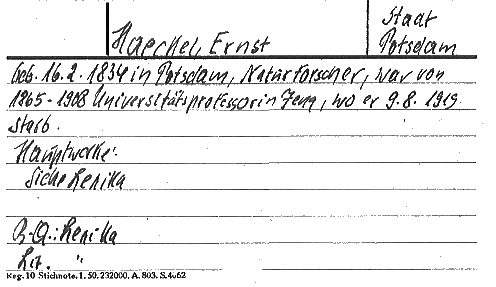 Haeckel, Ernst
Stadt
Potsdam
geb. 16.2.1834 in Potsdam, Naturforscher, war von
1865-1908 Universitätsprofessor in Jena, wo er 9.8.1919
starb.
Hauptwerke:
Siehe Lexika
B.-Q.: Lexika
Lit. "
Reg. 10 Stichnote. 1. 50. 232000. A. 803. S. 4. 62